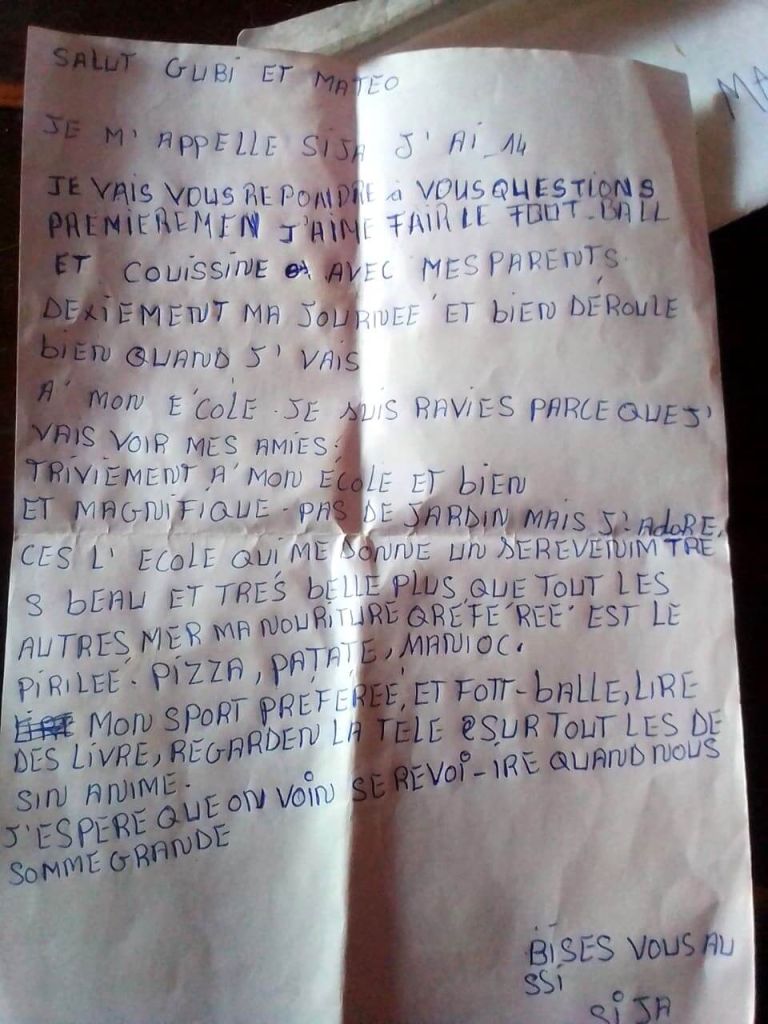 SALUT GUBI ET MATEO
MA
JE M' APPELLE SIJA J' AI_14
JE VAIS VOUS REPONDRE à VOUS QUESTIONS
PREMIEREMEN J'AIME FAIR LE FOOT-BALL
ET COUISSINE AVEC MES PARENTS
DEXIEMENT MA JOURNEE' ET biEN DÉROULE
biEN QUAND J' VAIS
A' MON E'COLE. JE SUIS RAVIES PARCE QUE J'
VAIS VOIR MES AMIES:
TRIVIEMENT A' MON ÉCOLE ET biEN
ET MAGNIFIQUE - PAS DE JARDIN MAIS J'AdORE.
CES L' ECOLE QUI ME DONNE UN SEREVENIM TRE
S bEAU ET TRES bELLE PLUS QUE TOUT LES
AUTRES MER MA NOURITURE QREFE'REE' EST LE
PIRILEÉ. PIZZA, PATATE, MANIOC.
MON SPORT PREFEREE, ET FOTT-bALLE, LIRE
DES LIVRE, REGARDEN LA TELE SURTOUT LES DE
SIN ANIME.
J'ESPERE QUE ON VOIN SE REVOI-IRE QUAND NOUS
SOMME GRANDE
BISES VOUS AU
SSI
SIJA